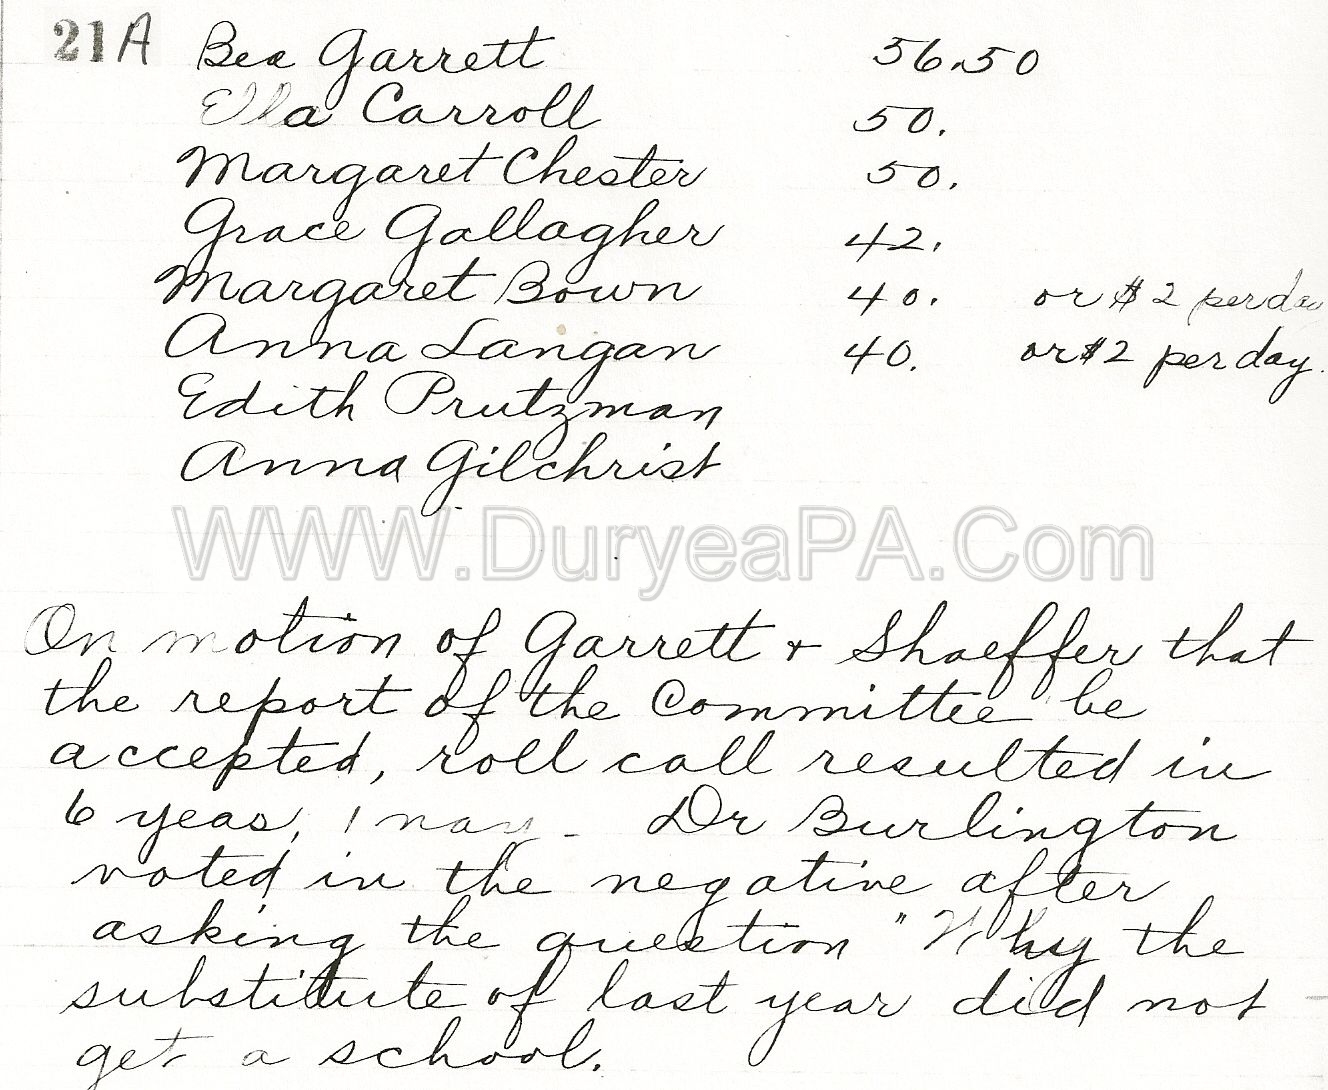 21A Bea Garrett 56.50
Ella Carroll 50.
Margaret Chester 50.
Grace Gallagher 42.
Margaret Bown 40. or $2 per day
Anna Langan 40. or $2 per day.
Edith Prutzman
Anna Gilchrist
WWW.DuryeaPA.Com
On motion of Garrett + Shaeffer that
the report of the Committee be
accepted, roll call resulted in
6 yeas, 1 nay - Dr Burlington
voted in the negative after
asking the question "Why the
substitute of last year did not
get a school.